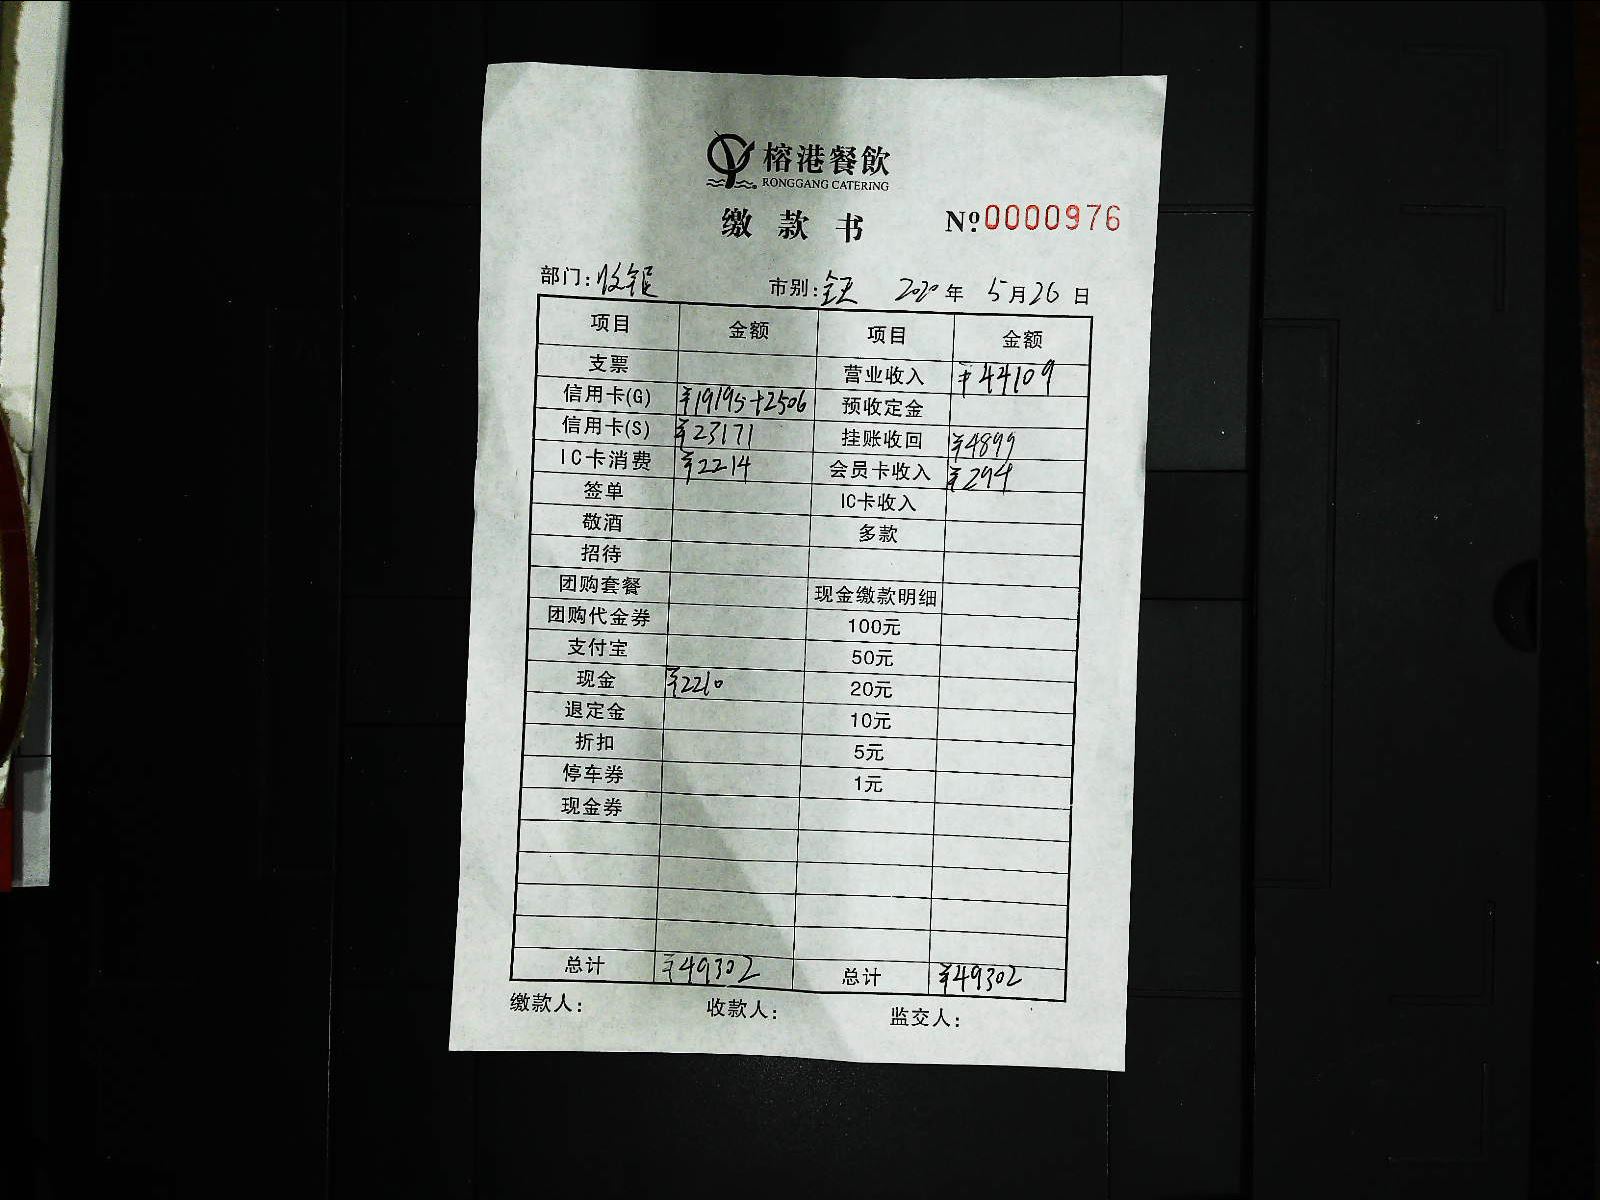 榕港餐飲
RONGGANG CATERING
缴款书 №0000976
部门:收银 市别:全天 2020年 5月26日
项目 金额 项目 金额
支票 营业收入 ¥44109
信用卡(G) ¥19195+2506 预收定金
信用卡(S) ¥23171 挂账收回 ¥4899
IC卡消费 ¥2214 会员卡收入 ¥294
签单 IC卡收入
敬酒 多款
招待
团购套餐 现金缴款明细
团购代金券 100元
支付宝 50元
现金 ¥2210 20元
退定金 10元
折扣 5元
停车券 1元
现金券
总计 ¥49302 总计 ¥49302
缴款人: 收款人: 监交人: